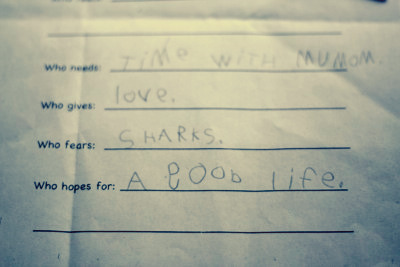 Who needs: TiMe WiTH MUMOM.
Who gives: love.
Who fears: SHARKS.
Who hopes for: A gOOD life.